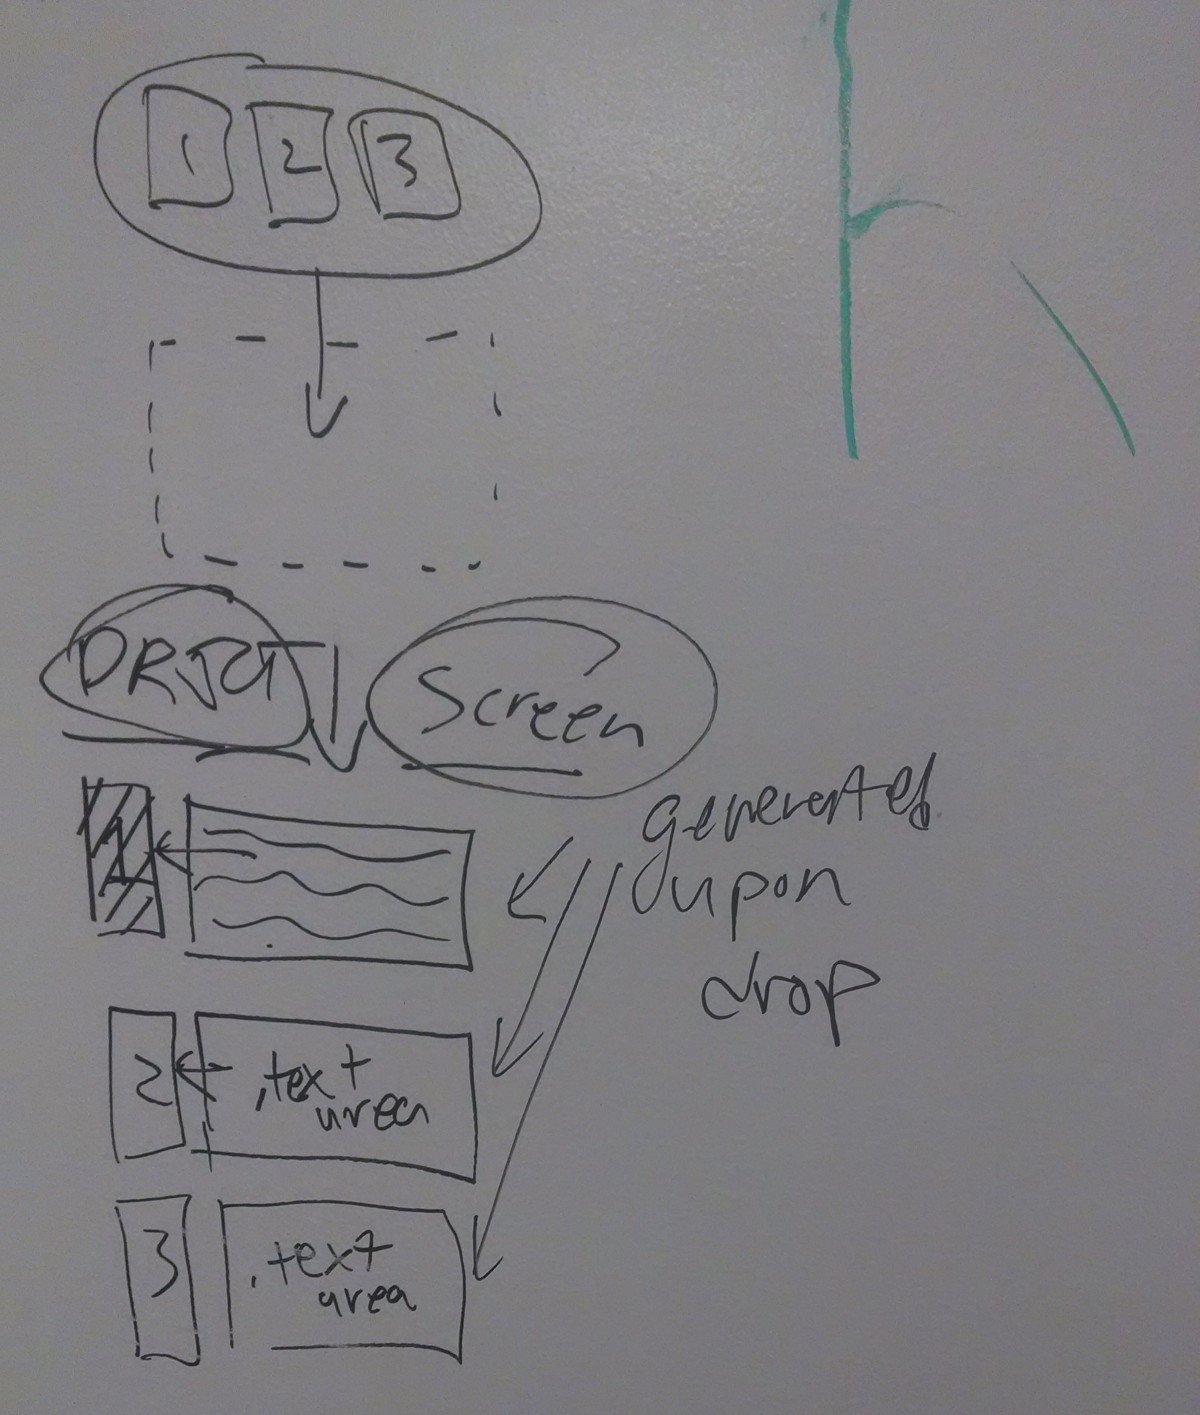 1 2 3
Screen
generated
upon
drop
1
2 .text
area
3 .text
area